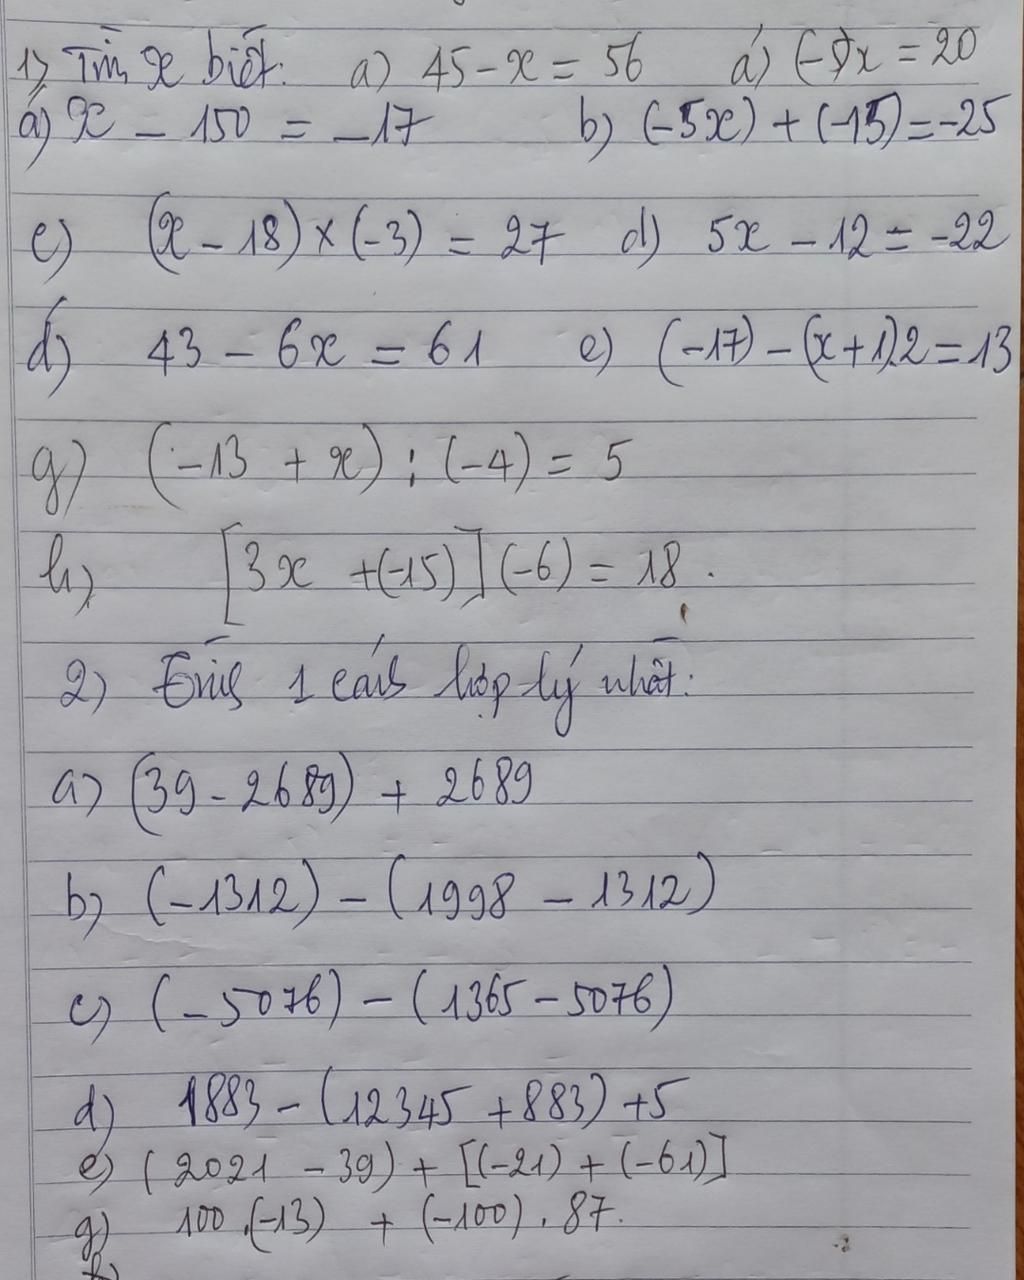 1) Tìm x biết: a) 45 - x = 56 á) (-5)x = 20
á) x - 150 = -17 b) (-5x) + (-15) = -25
c) (x - 18) × (-3) = 27 d) 5x - 12 = -22
đ) 43 - 6x = 61 e) (-17) - (x + 1).2 = 13
g) (-13 + x) : (-4) = 5
h) [3x + (-15)] (-6) = 18.
2) 1 cách hợp lý nhất:
a) (39 - 2689) + 2689
b) (-1312) - (1998 - 1312)
c) (-5076) - (1365 - 5076)
d) 1883 - (12345 + 883) + 5
e) (2021 - 39) + [(-21) + (-61)]
g) 100.(-13) + (-100).87.